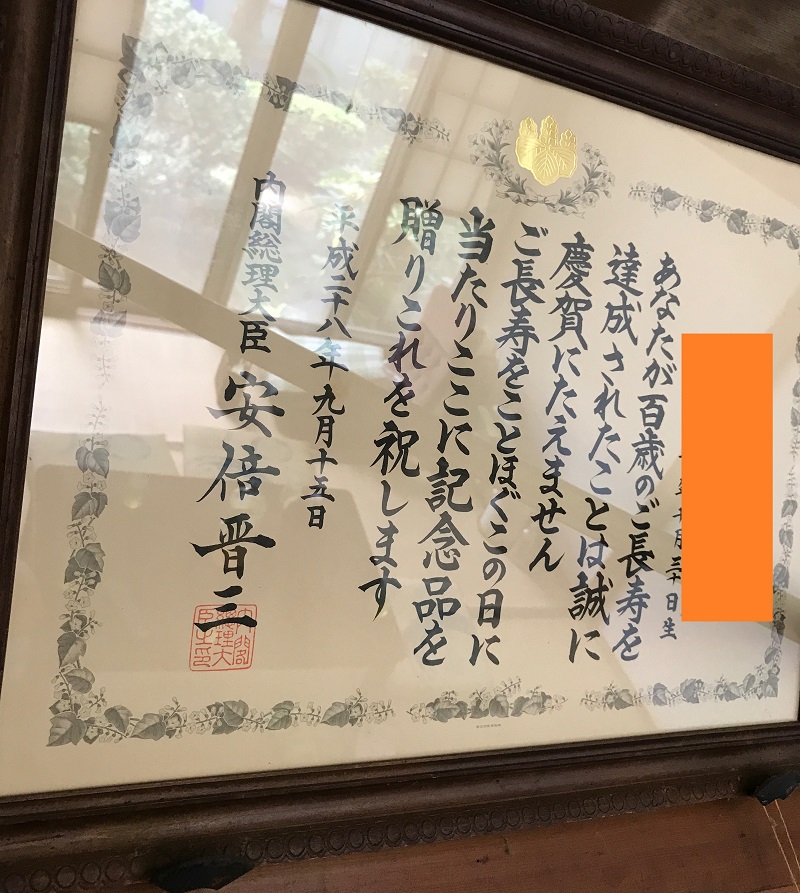 月三十日生
あなたが百歳のご長寿を
達成されたことは誠に
慶賀にたえません
ご長寿をことほぐこの日に
当たりここに記念品を
贈りこれを祝します
平成二十八年九月十五日
内閣総理大臣 安倍晋三
内閣総理大臣之印